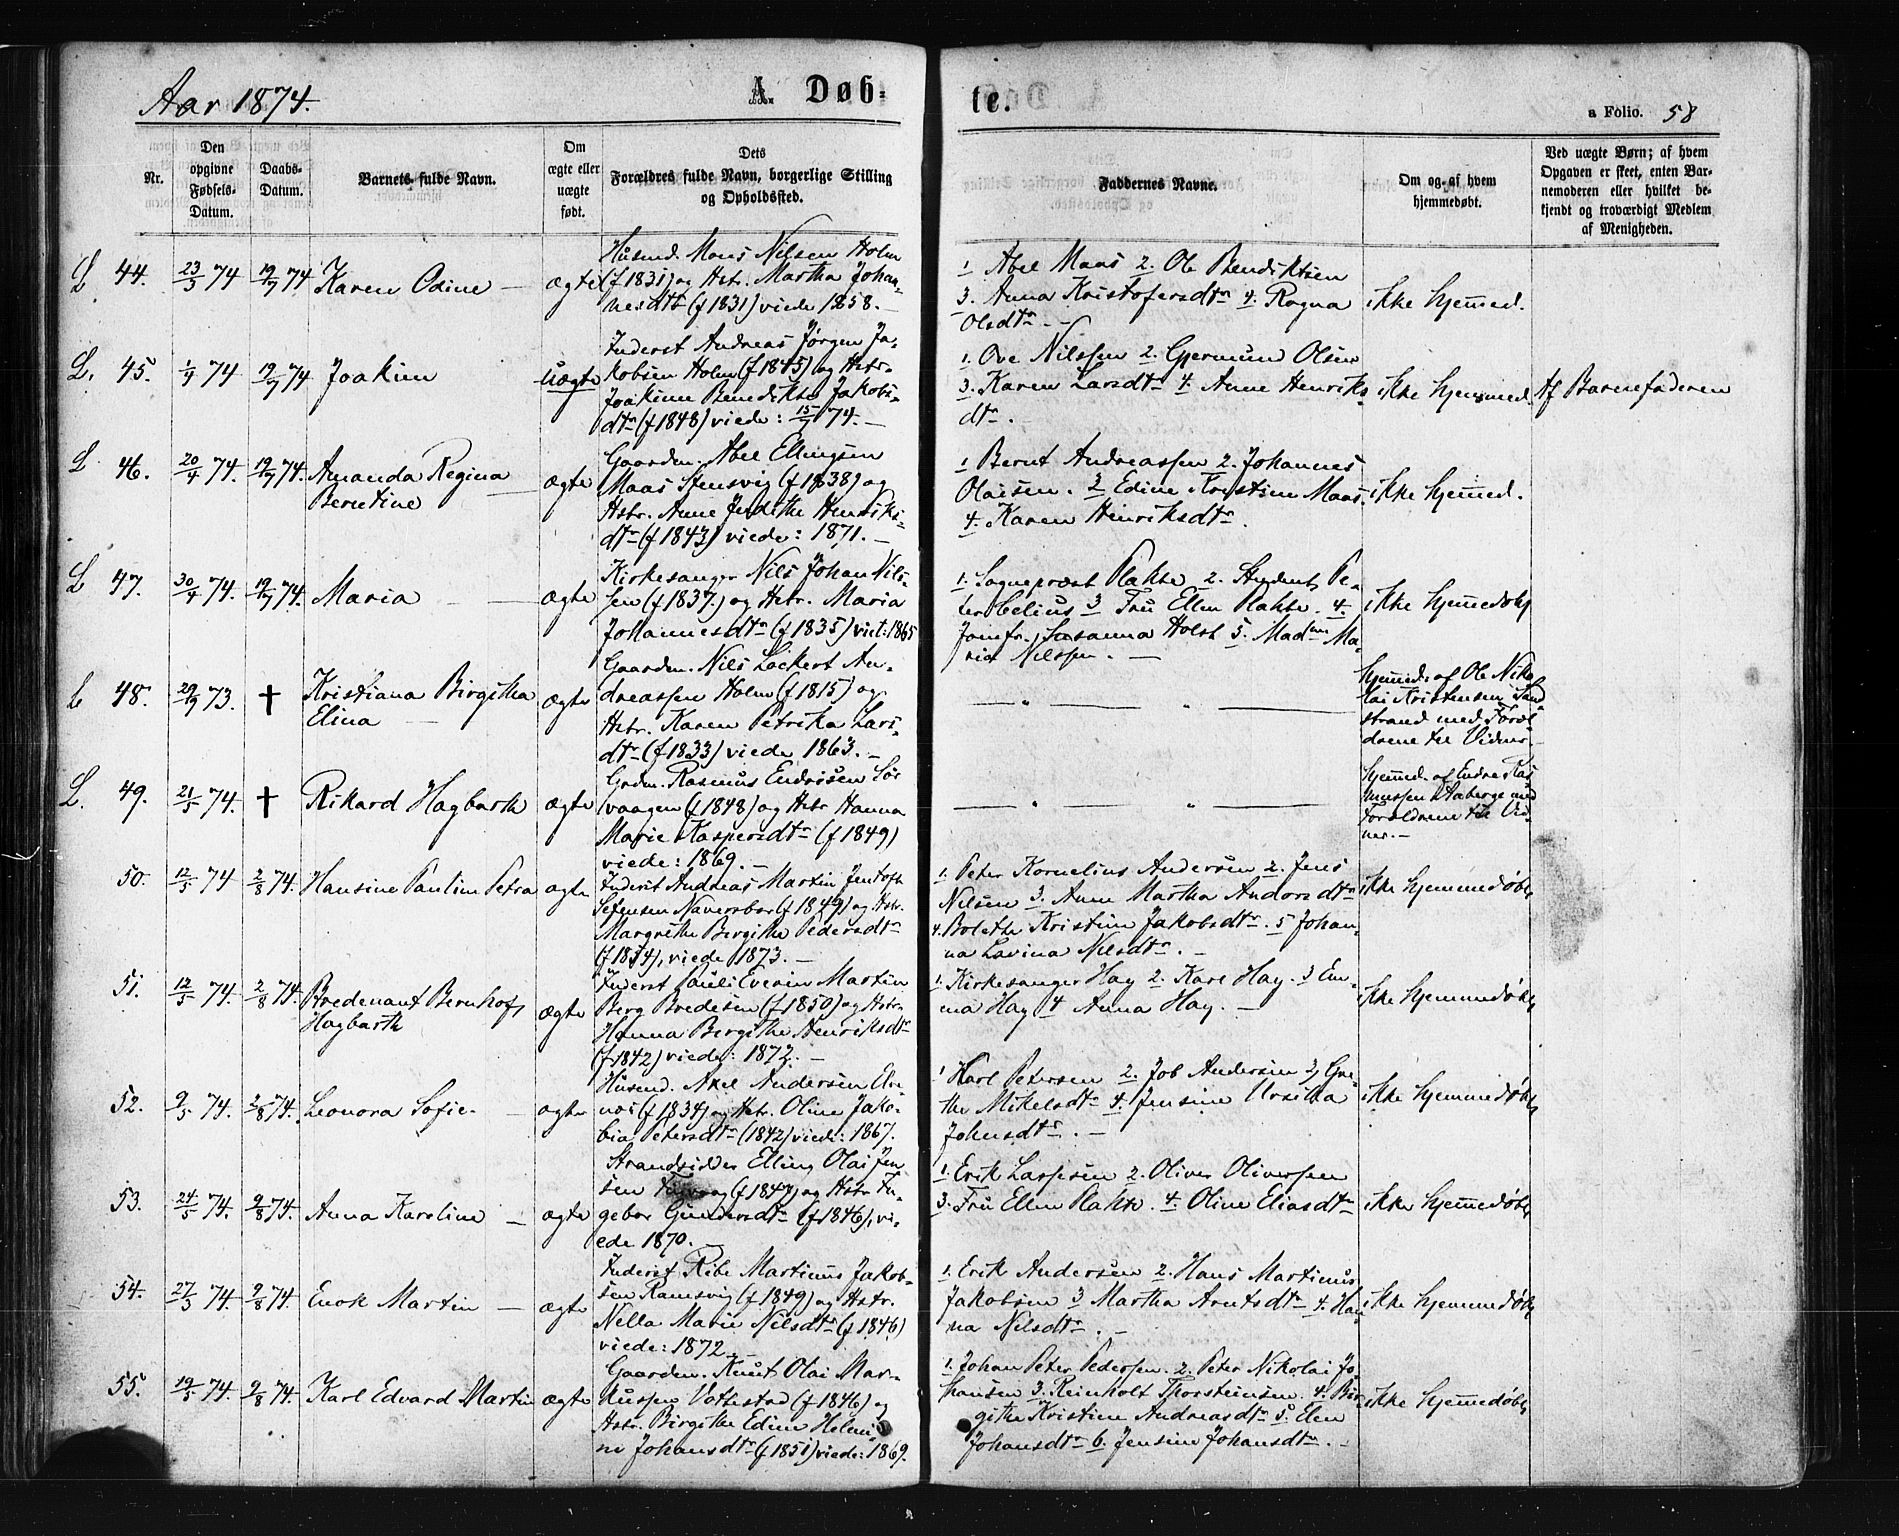 Aar 1874.
A. Døb-
te.
a Folio. 58
Nr.
Den
opgivne
Fødsels-
Datum.
Daabs-
Datum.
Barnets fulde Navn.
Om
ægte eller
uægte
født.
Dets
Forældres fulde Navn, borgerlige Stilling
og Opholdssted.
Faddernes Navne.
Om og af hvem
hjemmedøbt.
Ved uægte Børn; af hvem
Opgaven er skeet, enten Bar-
nemoderen eller hvilket be-
kjendt og troværdigt Medlem
af Menigheden.
L 44. 23/3 74 19/7 74 Karen Odine — ægte
Husmd. Mons Nilsen Holm
(f 1831) og Hstr. Martha Johan-
nesdtr (f 1831) viede 1858. —
1 Abel Maas 2. Ole Bendiktsen
3. Anna Kristofersdtr 4. Ragna
Olsdtr. —
ikke hjemmed.
L. 45. 1/4 74 19/7 74 Joakim uægte
Inderst Andreas Jørgen Ja-
kobsen Holm (f 1845) og Hstr.
Joakime Benedikte Jakobs-
dtr (f 1848) viede: 15/7 74. —
1. Ove Nilssen 2. Gjermund Olsen
3. Karen Larsdtr 4. Anne Henriks
dtr.
ikke hjemmed.
Af Barnefaderen
L 46. 20/4 74. 19/7 74. Amanda Regina
Berntine — ægte
Gaardm. Abel Ellingsen
Maas Stensvig (f 1838) og
Hstr. Anne Judithe Henriks-
dtr (f 1843) viede: 1871. —
1 Bernt Andreassen 2. Johannes
Olaisen. 3 Edine Kristine Maas.
4. Karen Henriksdtr.
ikke hjemmed.
L 47. 30/4 74. 19/7 74. Maria — ægte
Kirkesanger Nils Johan Nils-
sen (f 1837.) og Hstr. Maria
Johannesdtr (f 1835) viet: 1865
1. Sognepræst Plahte 2. Student Pe-
ter Celius 3 Fru Ellen Plahte. 4.
Jomfr. Susanna Holst 5. Madme Ma-
ria Nilssen. —
ikke hjemmedøbt
L 48. 29/9 73. † Kristiana Birgitha
Elina — ægte
Gaardm. Nils Lockert An-
dreassen Holm (f 1815) og
Hstr. Karen Petrika Lars-
dtr (f 1833) viede 1863. —
— " " —
hjemmed. af Ole Niko-
lai Kristensen Sand
strand med Foræl
drene til Vidner. —
L. 49. 21/5 74. † Rikard Hagbarth ægte
Grdm. Rasmus Endresen Sør
vaagen (f 1848) og Hstr Hanna
Marie Kaspersdtr (f 1849)
viede: 1869. —
— " " —
hjemmed. af Endre Ras
mussen Aaberge med
Forældrene til Vid
ner. —
50. 12/5 74 2/8 74. Hansine Pauline Petra ægte
Inderst Andreas Martin Jentoft
Setensen (f 1849) og Hstr.
Margrethe Birgithe Pedersdtr
(f 1854), viede 1873. —
1. Peter Kornelius Andersen 2. Jens
Nilsen 3. Anne Martha Andersdtr
4. Bolette Kristine Jakobsdtr. 5 Johan-
na Lavina Nilsdtr. —
ikke hjemmedøbt
51. 12/5 74. 2/8 74. Bredenant Bernhof
Hagbarth ægte
Inderst Pauli Everin Martin
Berg Bredesen (f 1850) og Hstr.
Hanna Birgithe Henriksdtr
(f 1842) viede: 1872. —
1. Kirkesanger Hay 2. Karl Hay. 3 Em-
ma Hay 4 Anna Hay. —
ikke hjemmedøbt
52. 9/5 74. 2/8 74. Leonora Sofie. — ægte
Husmd. Axel Andersen Elve-
nes (f 1834) og Hstr. Oline Jako-
bia Petersdtr (1842) viede: 1867.
1 Karl Petersen 2. Job Andersen 3, Gre-
the Mikelsdtr 4. Jensine Ursilla
Johnsdtr. —
ikke hjemmedøbt
53. 24/5 74. 9/8 74. Anna Karoline — ægte
Strandsidder Elling Olai Jen
sen (f 1847) og Hstr. In-
gebor Gundersdtr (f 1846), vi-
ede 1870. —
1. Erik Lassesen 2. Oliver Oliversen
3. Fru Ellen Plahte. 4. Oline Eliasdtr
ikke hjemmedøbt
54. 27/3 74. 9/8 74. Enok Martin — ægte
Inderst Ribe Martinus Jakob-
sen Ramsvig (f 1849) og Hstr.
Nella Marie Nilsdtr (f 1846)
viede: 1872. —
1. Erik Andersen 2. Hans Martinus
Jakobsen 3 Martha Arntsdtr 4. Han-
na Nilsdtr. —
ikke hjemmedøbt
55. 19/5 74. 9/8 74. Karl Edvard Martin ægte
Gaardm. Knut Olai Mar-
kussen Vottestad (f 1846) og
Hstr. Birgithe Edine Helmi-
ne Johansdtr (f 1851) viede: 1869.
1. Johan Peter Pedersen. 2. Peter Nikolai Jo-
hansen 3. Reinholt Thorsteinsen. 4. Bir-
githe Kristine Andreasdtr 5. Elen
Johansdtr 6. Jensine Johansdtr. —
ikke hjemmedøbt